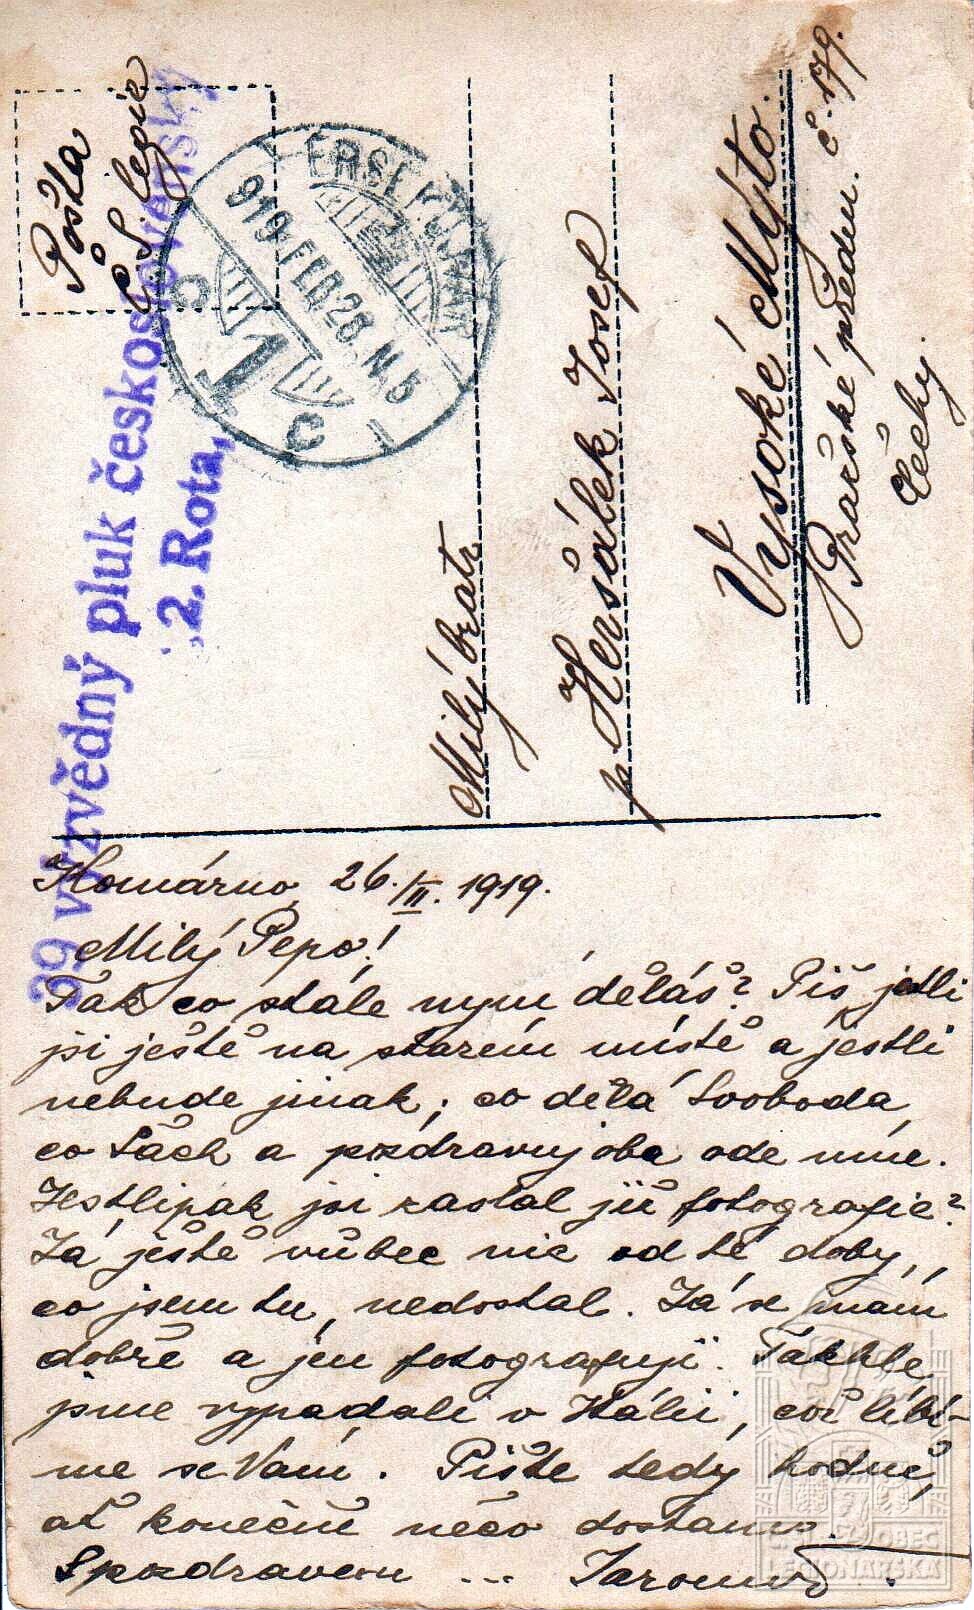 Pošta
Č. S. legie
39 výzvědný pluk československý
2. Rota,
ERSEKUJVAR
919 FEB 28. N. 5
1
c c
Milý bratr
p. Hersálek Josef
Vysoké Mýto.
Pražské předm. č. 179.
Čechy.
Komárno, 26./II. 1919.
Milý Pepo!
Tak co stále nyní děláš? Piš jetli
jsi ještě na starém místě a jestli
nebude jinak; co dělá Svoboda,
co Šách a pozdravuj oba ode mne.
Jestlipak jsi zaslal již fotografie?
Já ještě vůbec nic od té doby,
co jsem tu, nedostal. Já se mám
dobře a jen fotografuji. Takhle
jsme vypadali v Itálii, což líbí-
me se Vám. Pište tedy hodně,
ať konečně něco dostanu.
S pozdravem ... Jaromír.
OBEC
LEGIONÁŘSKÁ